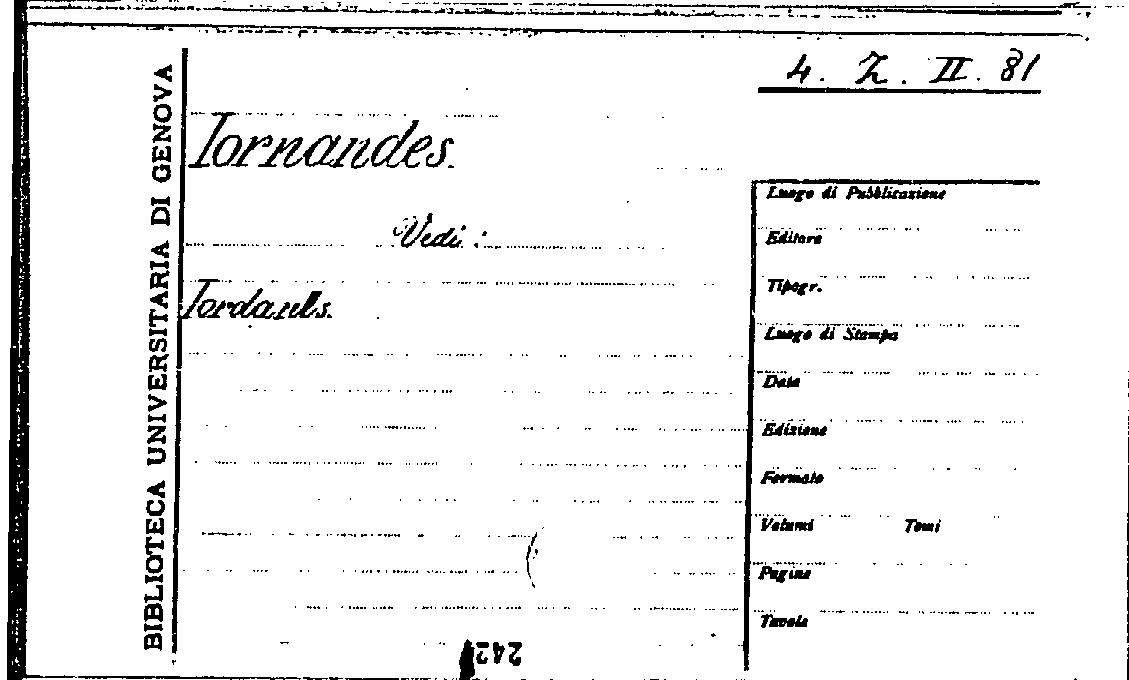 4. Z. II. 81
BIBLIOTECA UNIVERSITARIA DI GENOVA
Iornandes.
Vedi:
Iordanes.
Luogo di Pubblicazione
Editore
Tipogr.
Luogo di Stampa
Data
Edizione
Formato
Volumi Tomi
Pagine
Tavole
242